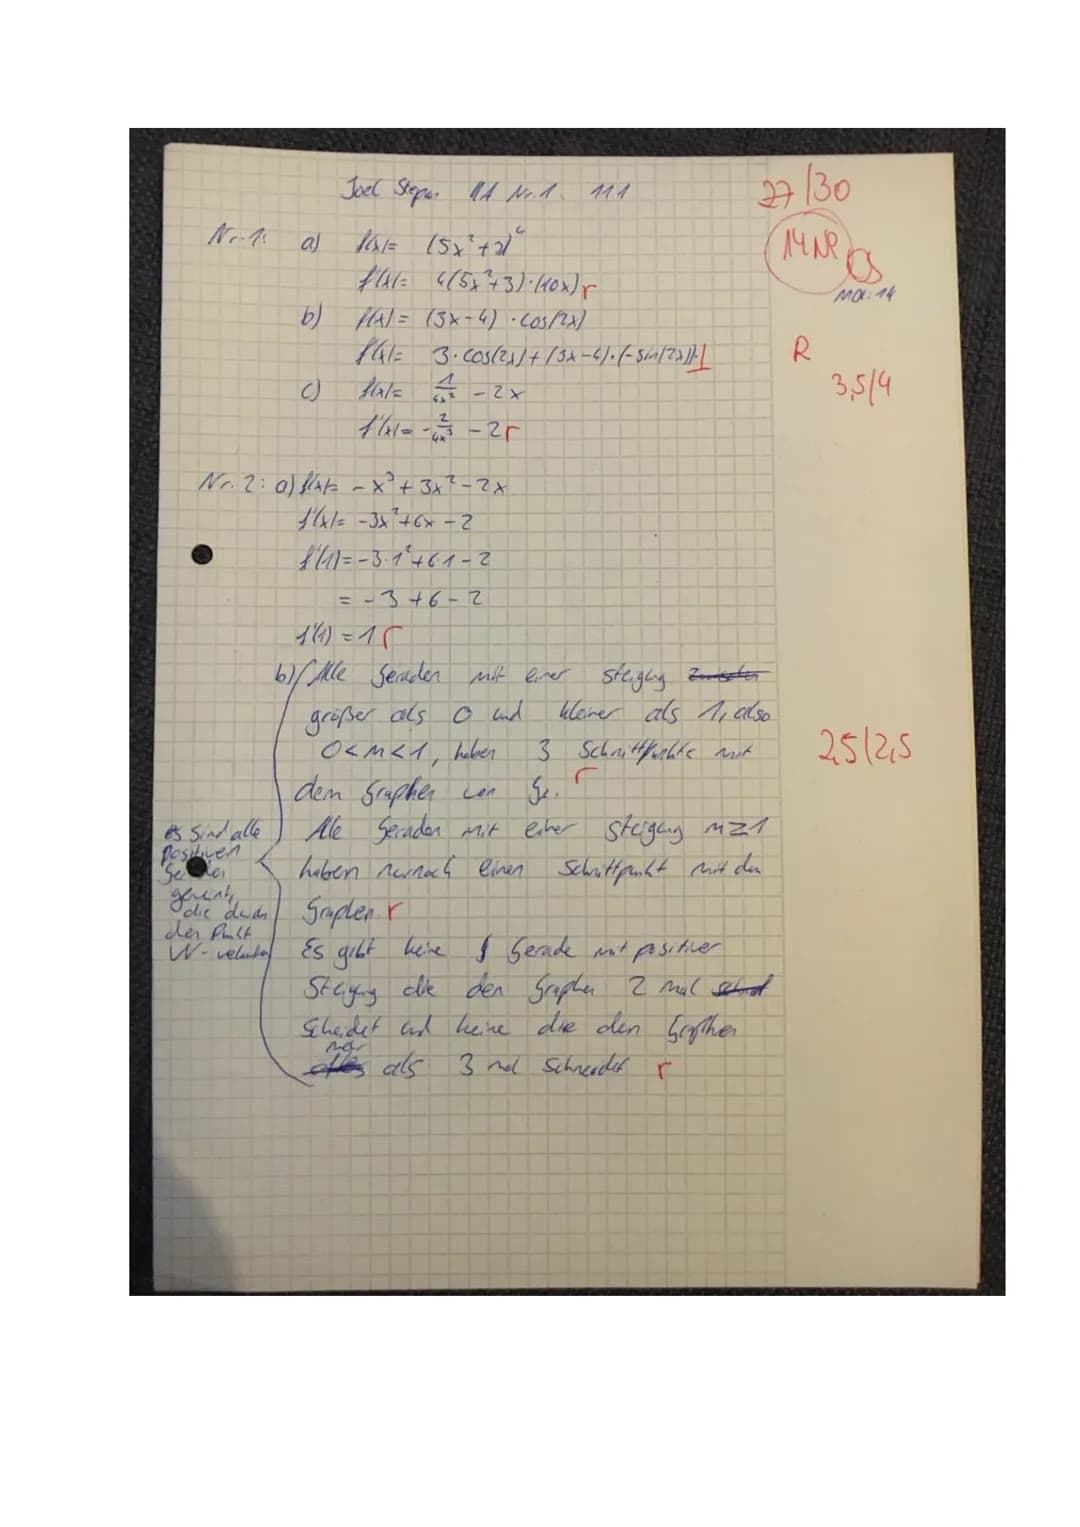 Joel Stepan KA Nr.1. 111
27/30
14 NP
MDL: 14
Nr. 1: a) f(x)= (5x²+3)⁴
f'(x)= 4(5x²+3)·(10x) r
b) f(x)= (3x-4) · cos(2x)
f'(x)= 3·cos(2x)+(3x-4)·(-sin(2x))·
R
3,5/4
c) f(x)= 1/4x² - 2x
f'(x)= -2/4x³ - 2 r
Nr. 2: a) f(x)= -x³+3x²-2x
f'(x)= -3x²+6x-2
f'(1)=-3·1²+6·1-2
= -3+6-2
f'(1) = 1 r
b) Alle Geraden mit einer steigung
größer als 0 und kleiner als 1, also
0<m<1, haben 3 Schnittpunkte mit
2,5/2,5
dem Graphen von r
Alle Geraden mit einer steigung m≥1
haben nurnoch einen Schnittpunkt mit den
Graphen. r
Es gibt keine Gerade mit positiver
Steigung die den Graphen 2 mal
Scheidet und keine die den Graphen
mer als 3 mal Schneidet r
es sind alle
positiven
gemeint,
die durch
den Punkt
W